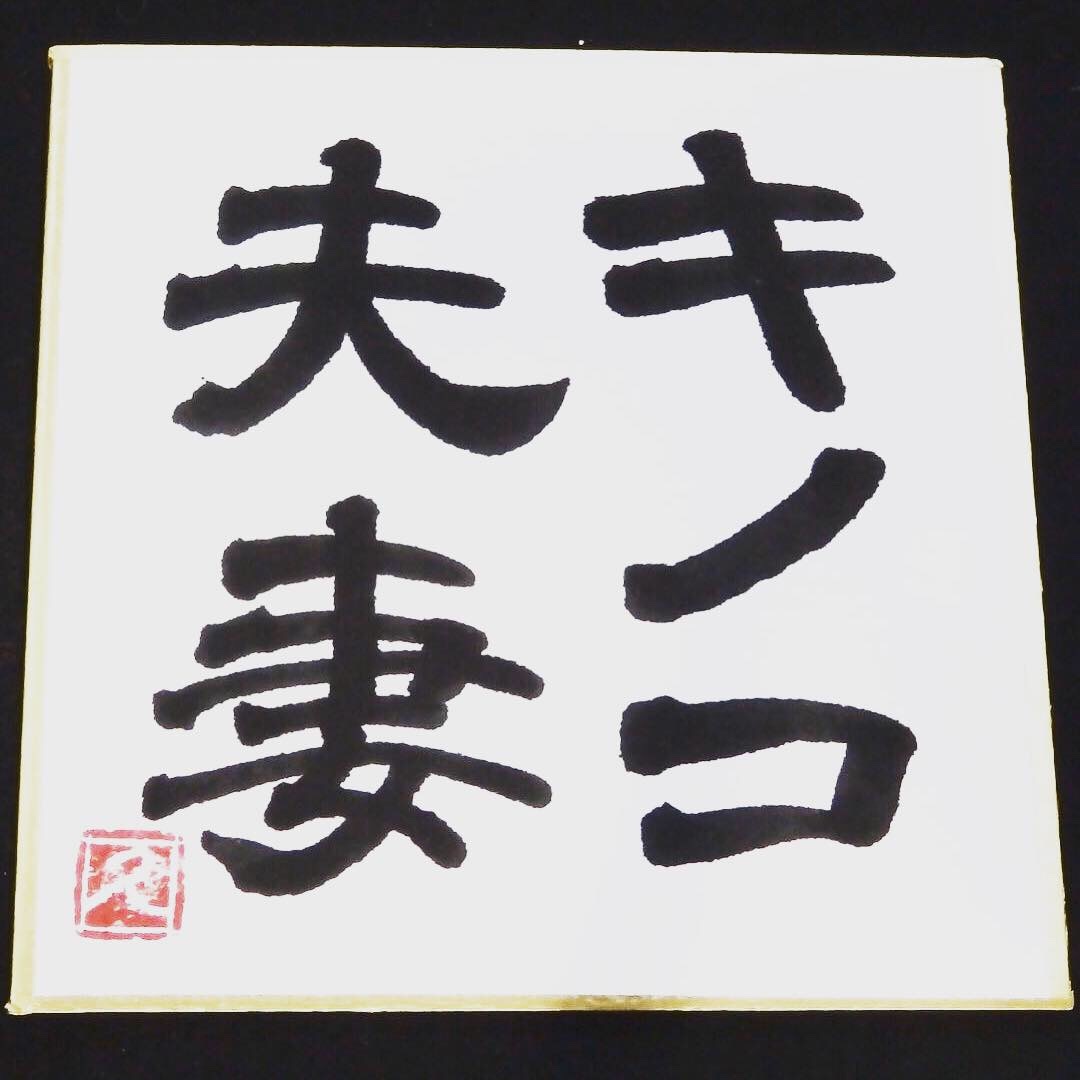 キノコ
夫妻